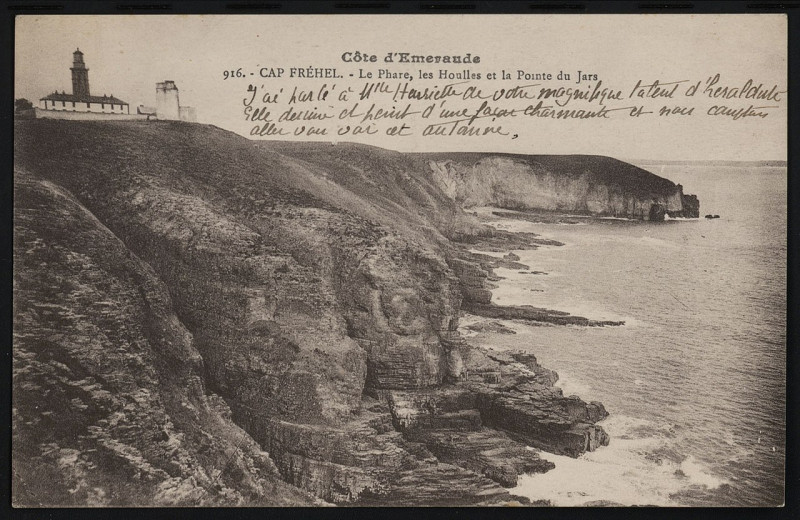 Côte d'Emeraude
916. - CAP FRÉHEL. - Le Phare, les Houlles et la Pointe du Jars
J'ai parlé à Mlle Henriette de votre magnifique talent d'héraldiste
Elle dessine et peint d'une façon charmante et nous comptons
aller vous voir cet automne.